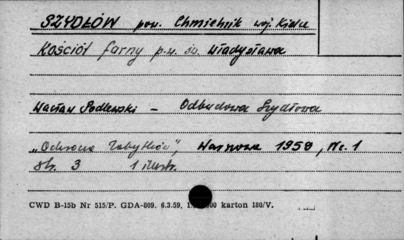 SZYDŁÓW pow. Chmielnik woj. Kielce
Kościół farny p.w. św. Władysława
Wacław Podlewski – Odbudowa Szydłowa
„Ochrona Zabytków”, Warszawa 1958, Nr. 1
str. 3 1 ilustr.
CWD B-15b Nr 515/P. GDA-809. 6.3.59, karton 180/V.